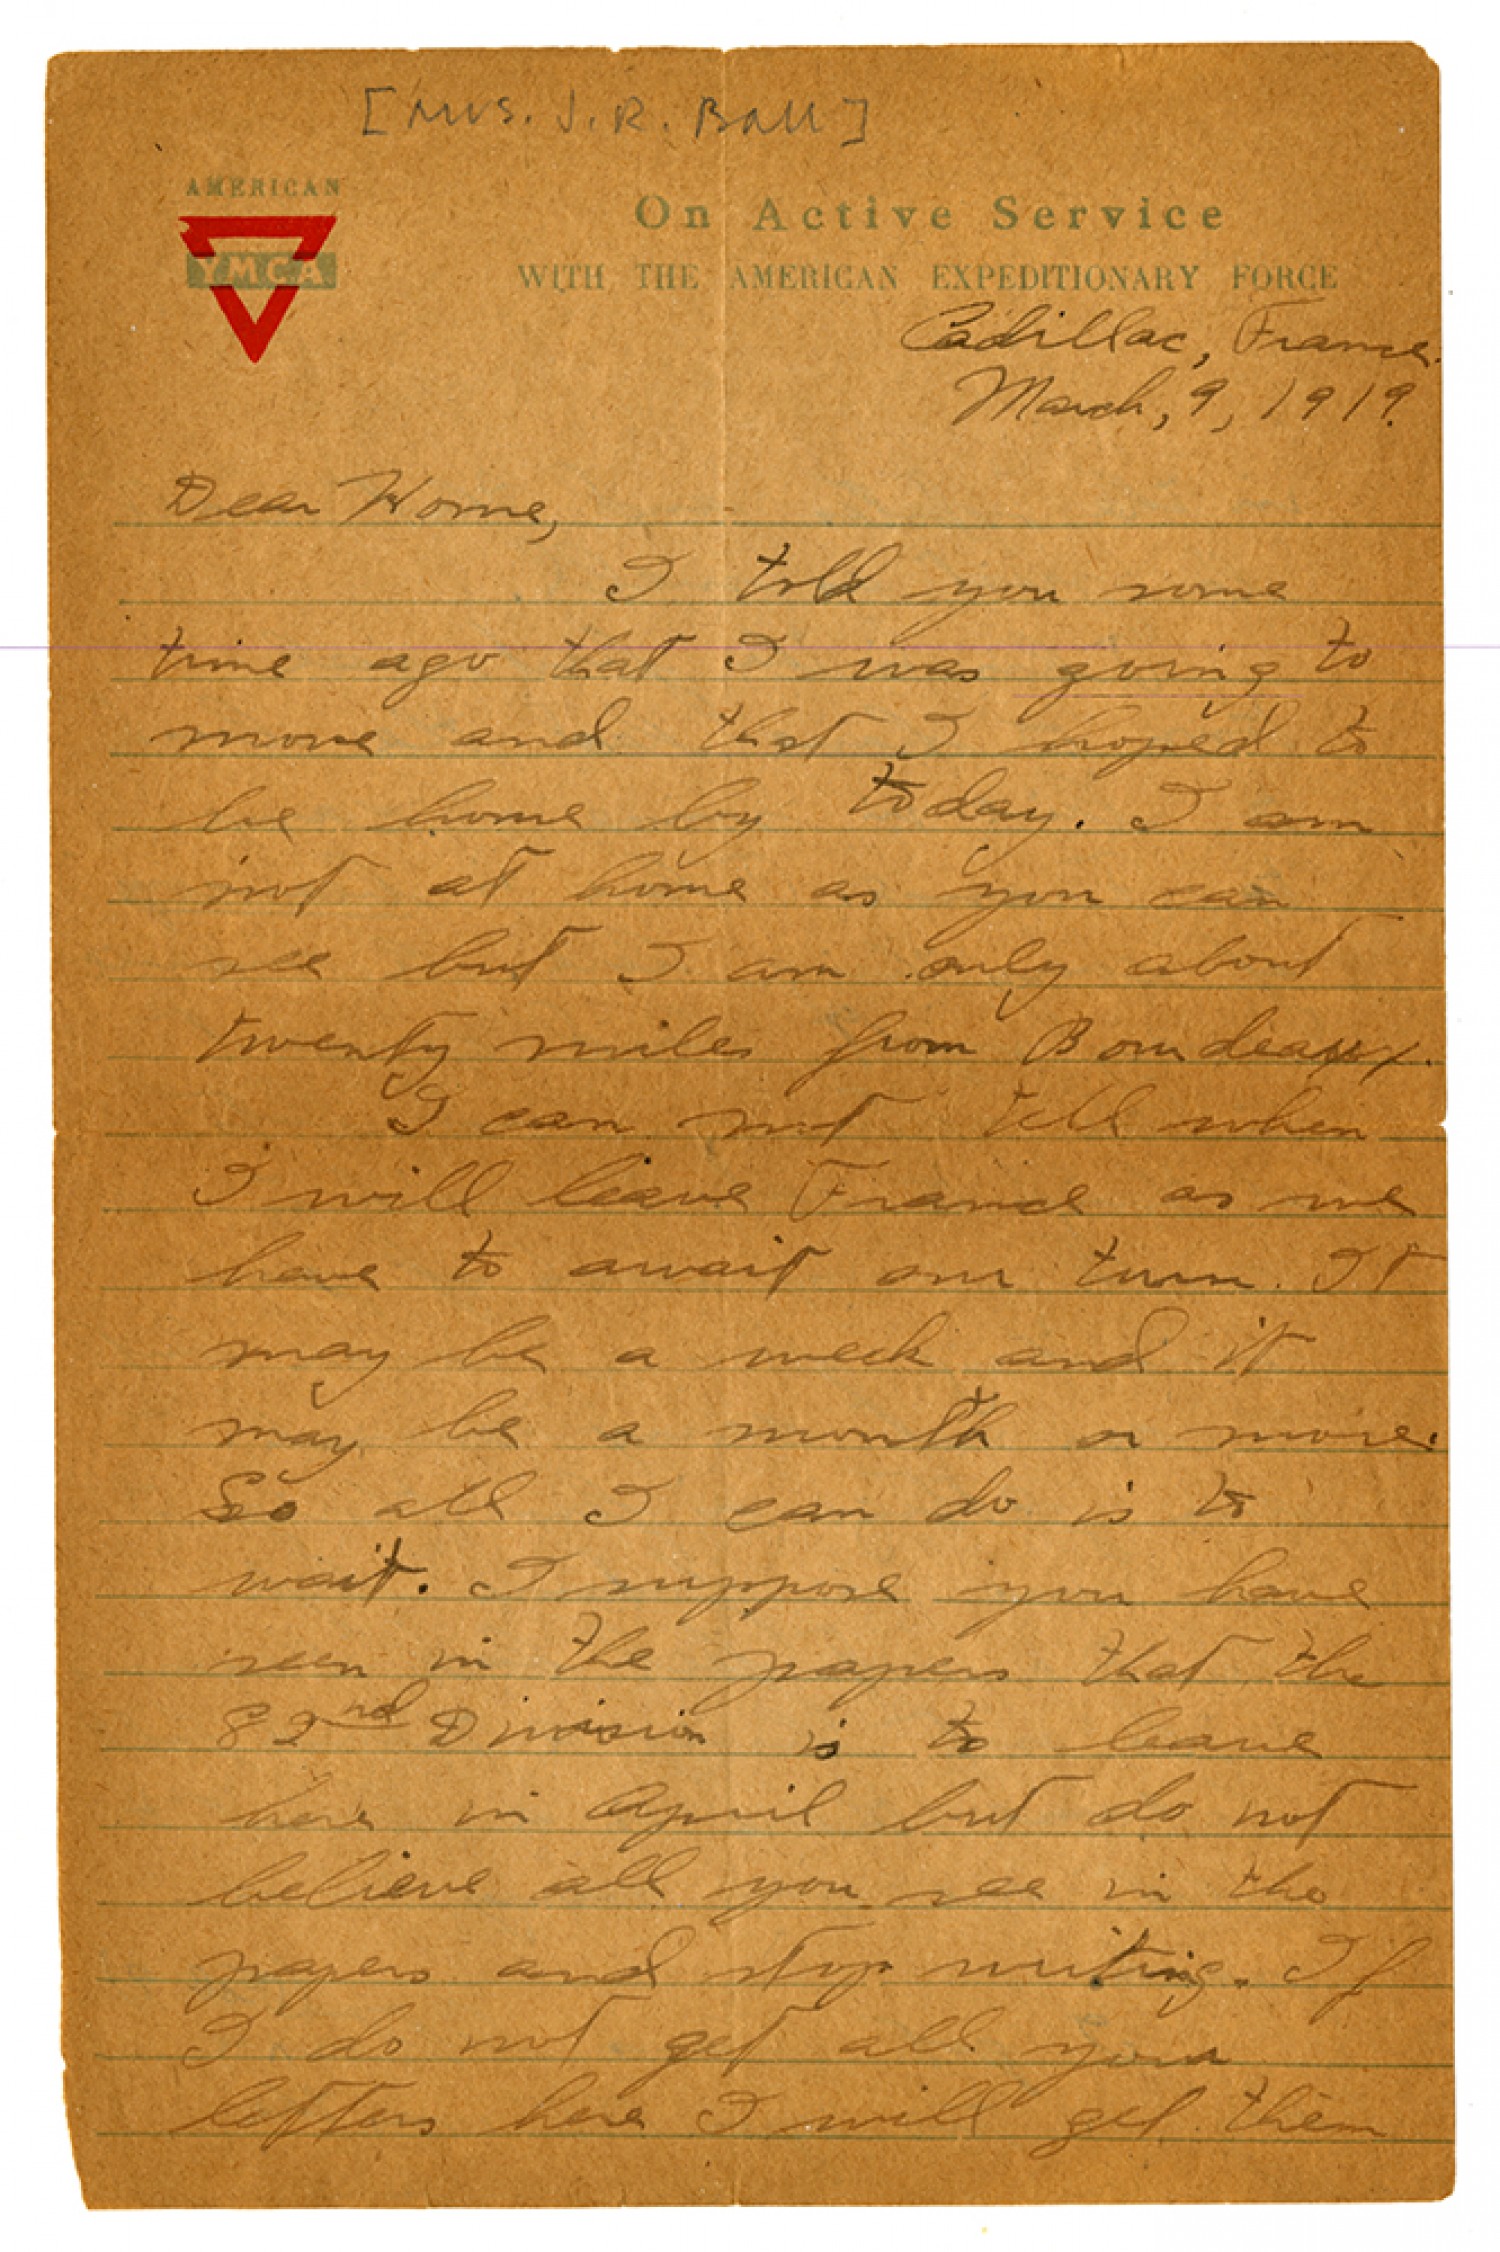 [Mrs. J. R. Ball]
AMERICAN
YMCA
On Active Service
WITH THE AMERICAN EXPEDITIONARY FORCE
Cadillac, France.
March, 9, 1919.
Dear Home,
I told you some
time ago that I was going to
move and that I hoped to
be home by today. I am
not at home as you can
see but I am only about
twenty miles from Bourdeaux.
I can not tell when
I will leave France as we
have to await our turn. It
may be a week and it
may be a month or more.
So all I can do is to
wait. I suppose you have
seen in the papers that the
82nd Division is to leave
here in April but do not
believe all you see in the
papers and stop writing. If
I do not get all your
letters here I will get them